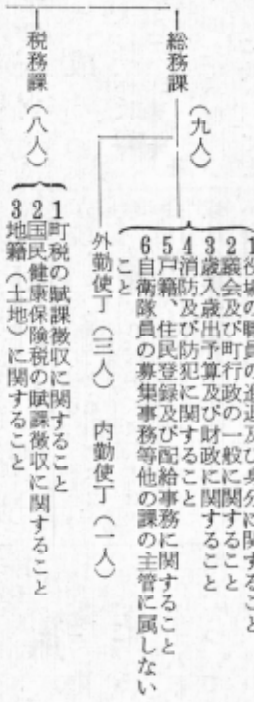 総務課（九人）
1役場の職員の進退及び身分に関すること
2議会及び町行政の一般に関すること
3歳入歳出予算及び財政に関すること
4消防及び防犯に関すること
5戸籍、住民登録及び配給事務に関すること
6自衛隊員の募集事務等他の課の主管に属しない
こと
外勤使丁（三人）　内勤使丁（一人）
税務課（八人）
1町税の賦課徴収に関すること
2国民健康保険税の賦課徴収に関すること
3地籍（土地）に関すること